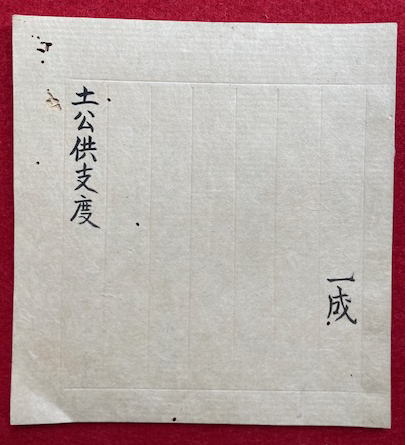 土公供支度
一成